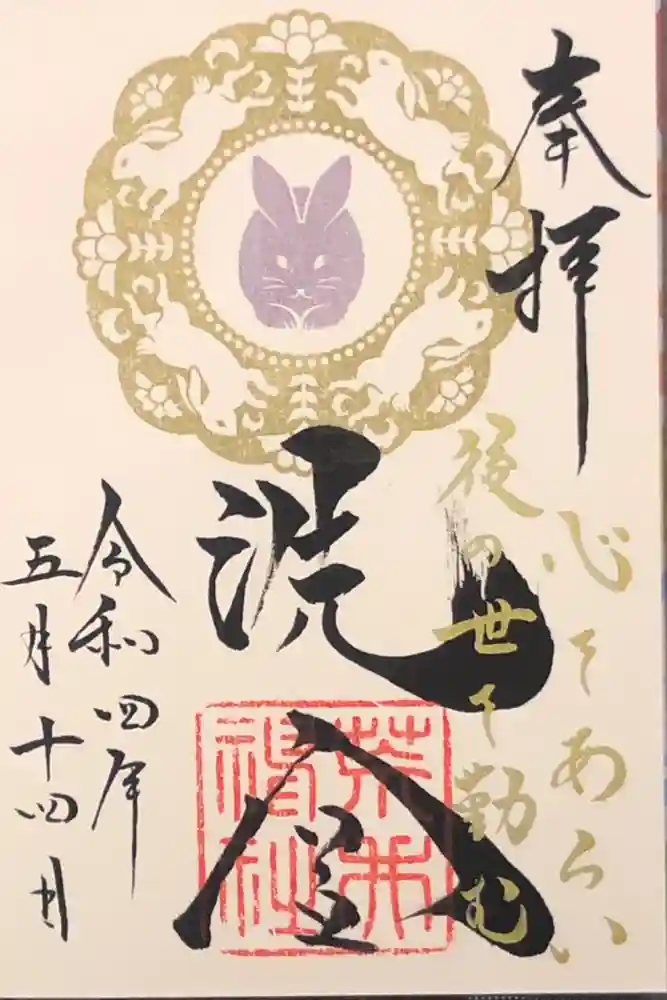 奉拝
心てあらい
後の世て勤む
洗金
荒井
神社
令和四年
五月十四日